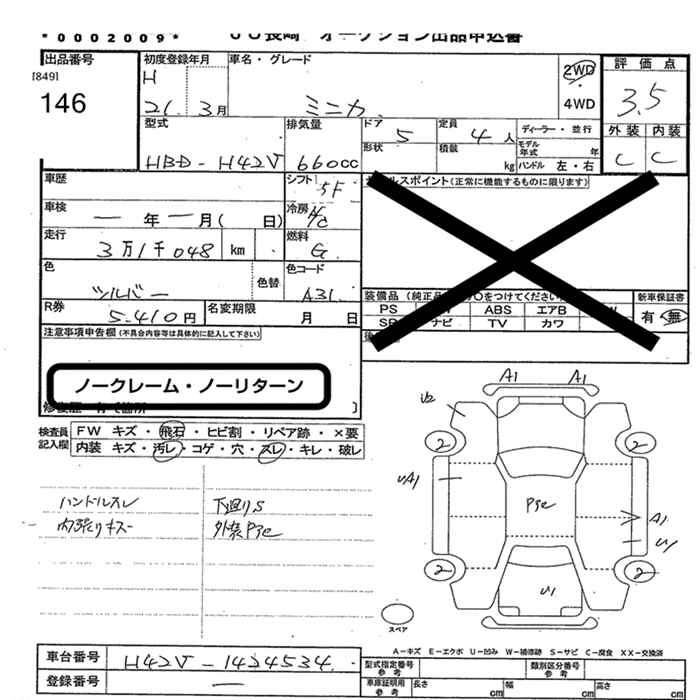 *0002009*
出品番号
[849]
146
初度登録年月
H 21. 3月
車名・グレード
ミニカ
2WD
・
4WD
評価点
3.5
外装 内装
C C
型式
HBD-H42V
排気量
660cc
ドア
5
形状
定員
4人
積載
kg
ディーラー・並行
モデル年式 年
ハンドル 左・右
車歴
シフト
5F
車検
一年一月( 日)
冷房
A/C
走行
3万1千048 km
燃料
G
色
シルバー
色替
色コード
A31
R券
5.410円
名変期限
月 日
(正常に機能するものに限ります)
装備品
PS
ABS
エアB
ナビ
TV
カワ
新車保証書
有・無
注意事項申告欄(不具合内容等は具体的に記入して下さい)
ノークレーム・ノーリターン
検査員記入欄
FW キズ・飛石・ヒビ割・リペア跡・×要
内装 キズ・汚レ・コゲ・穴・スレ・キレ・破レ
ハンドルスレ
下廻りS
内張りキズ
A1 A1
U2
2 2
UA1
A1
U1
2 2
U1
スペア
A-キズ E-エクボ U-凹み W-補修跡 S-サビ C-腐食 XX-交換済
車台番号
H42V-1424534
登録番号
一
型式指定番号 参考
類別区分番号 参考
車庫証明用 参考
長さ cm
幅 cm
高さ cm